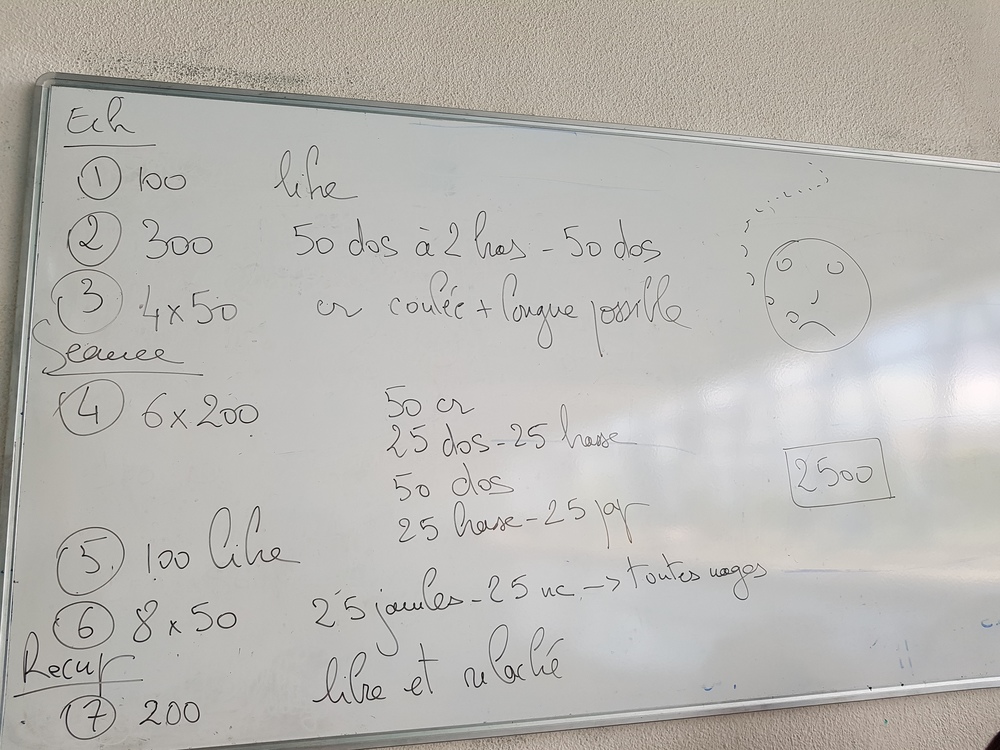 Ech
1 100 libre
2 300 50 dos à 2 bras - 50 dos
3 4x50 cr coulée + longue possible
Séance
4 6x200 50 cr
25 dos - 25 brasse
50 dos
25 brasse - 25 pap
2500
5 100 libre
6 8x50 25 jambes - 25 nc -> toutes nages
Recup
7 200 libre et relaché